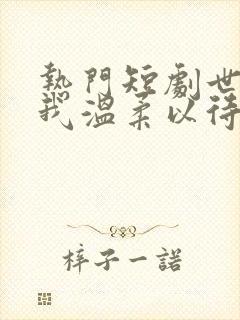 熱門短劇世
我溫柔以待
梓子一諾